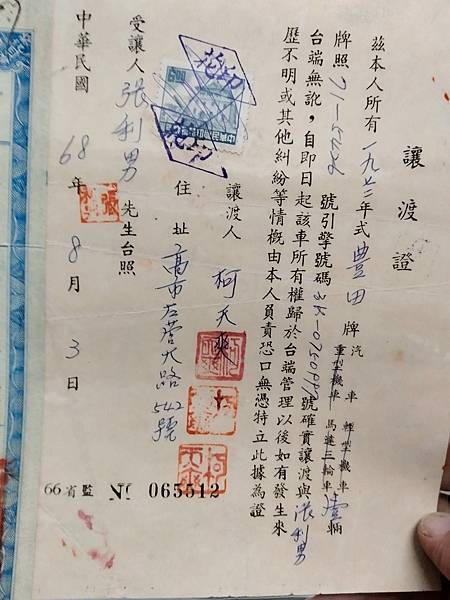 讓渡證
茲本人所有一九七三年式豐田牌汽車 輕型機車 重型機車 馬達三輪車 壹輛
牌照71-
號引擎號碼
號確實讓渡與張利男
台端無訛，自即日起該車所有權歸於台端管理以後如有發生來
歷不明或其他糾紛等情概由本人負責恐口無憑特立此據為證
讓渡人 柯天爽
住址 高市左營大路542號
受讓人 張利男 先生台照
中華民國68年8月3日
6.00
66省監 № 065512